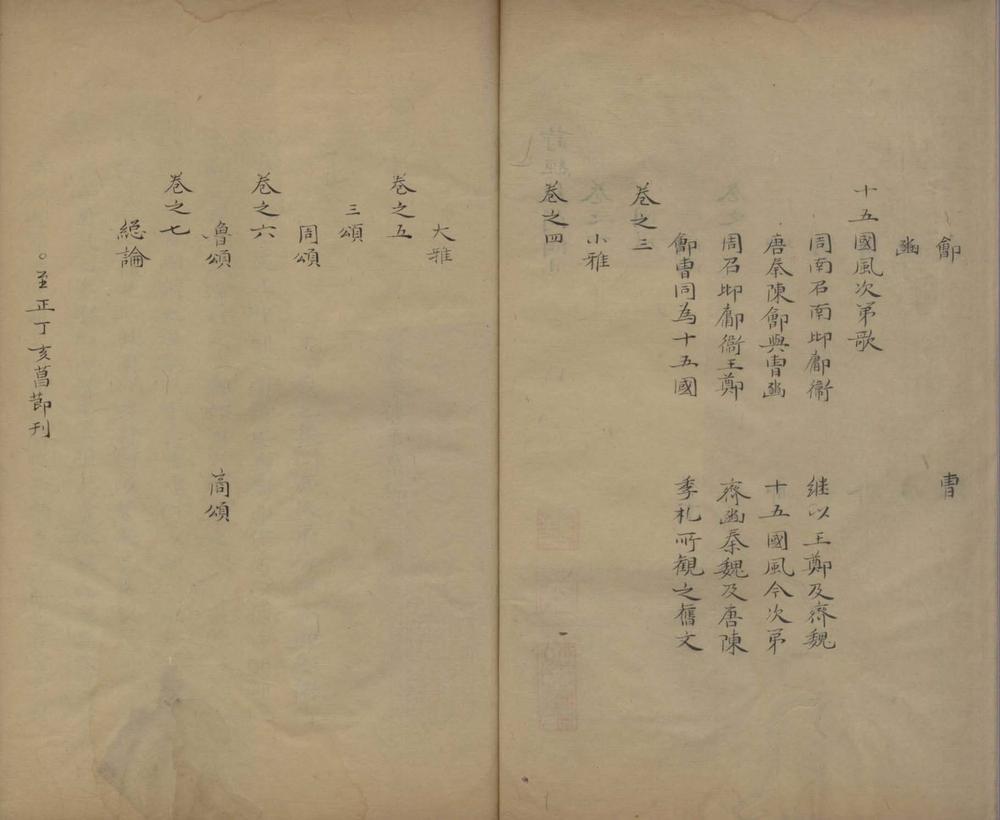 鄶 曹
豳
十五國風次第歌
周南召南邶鄘衞 継以王鄭及齊魏
唐秦陳鄶與曹豳 十五國風今次第
周召邶鄘衞王鄭 齊豳秦魏及唐陳
鄶曹同為十五國 季札所觀之舊文
卷之三
小雅
卷之四
大雅
卷之五
三頌
周頌
卷之六
魯頌 商頌
卷之七
總論
○至正丁亥菖節刊